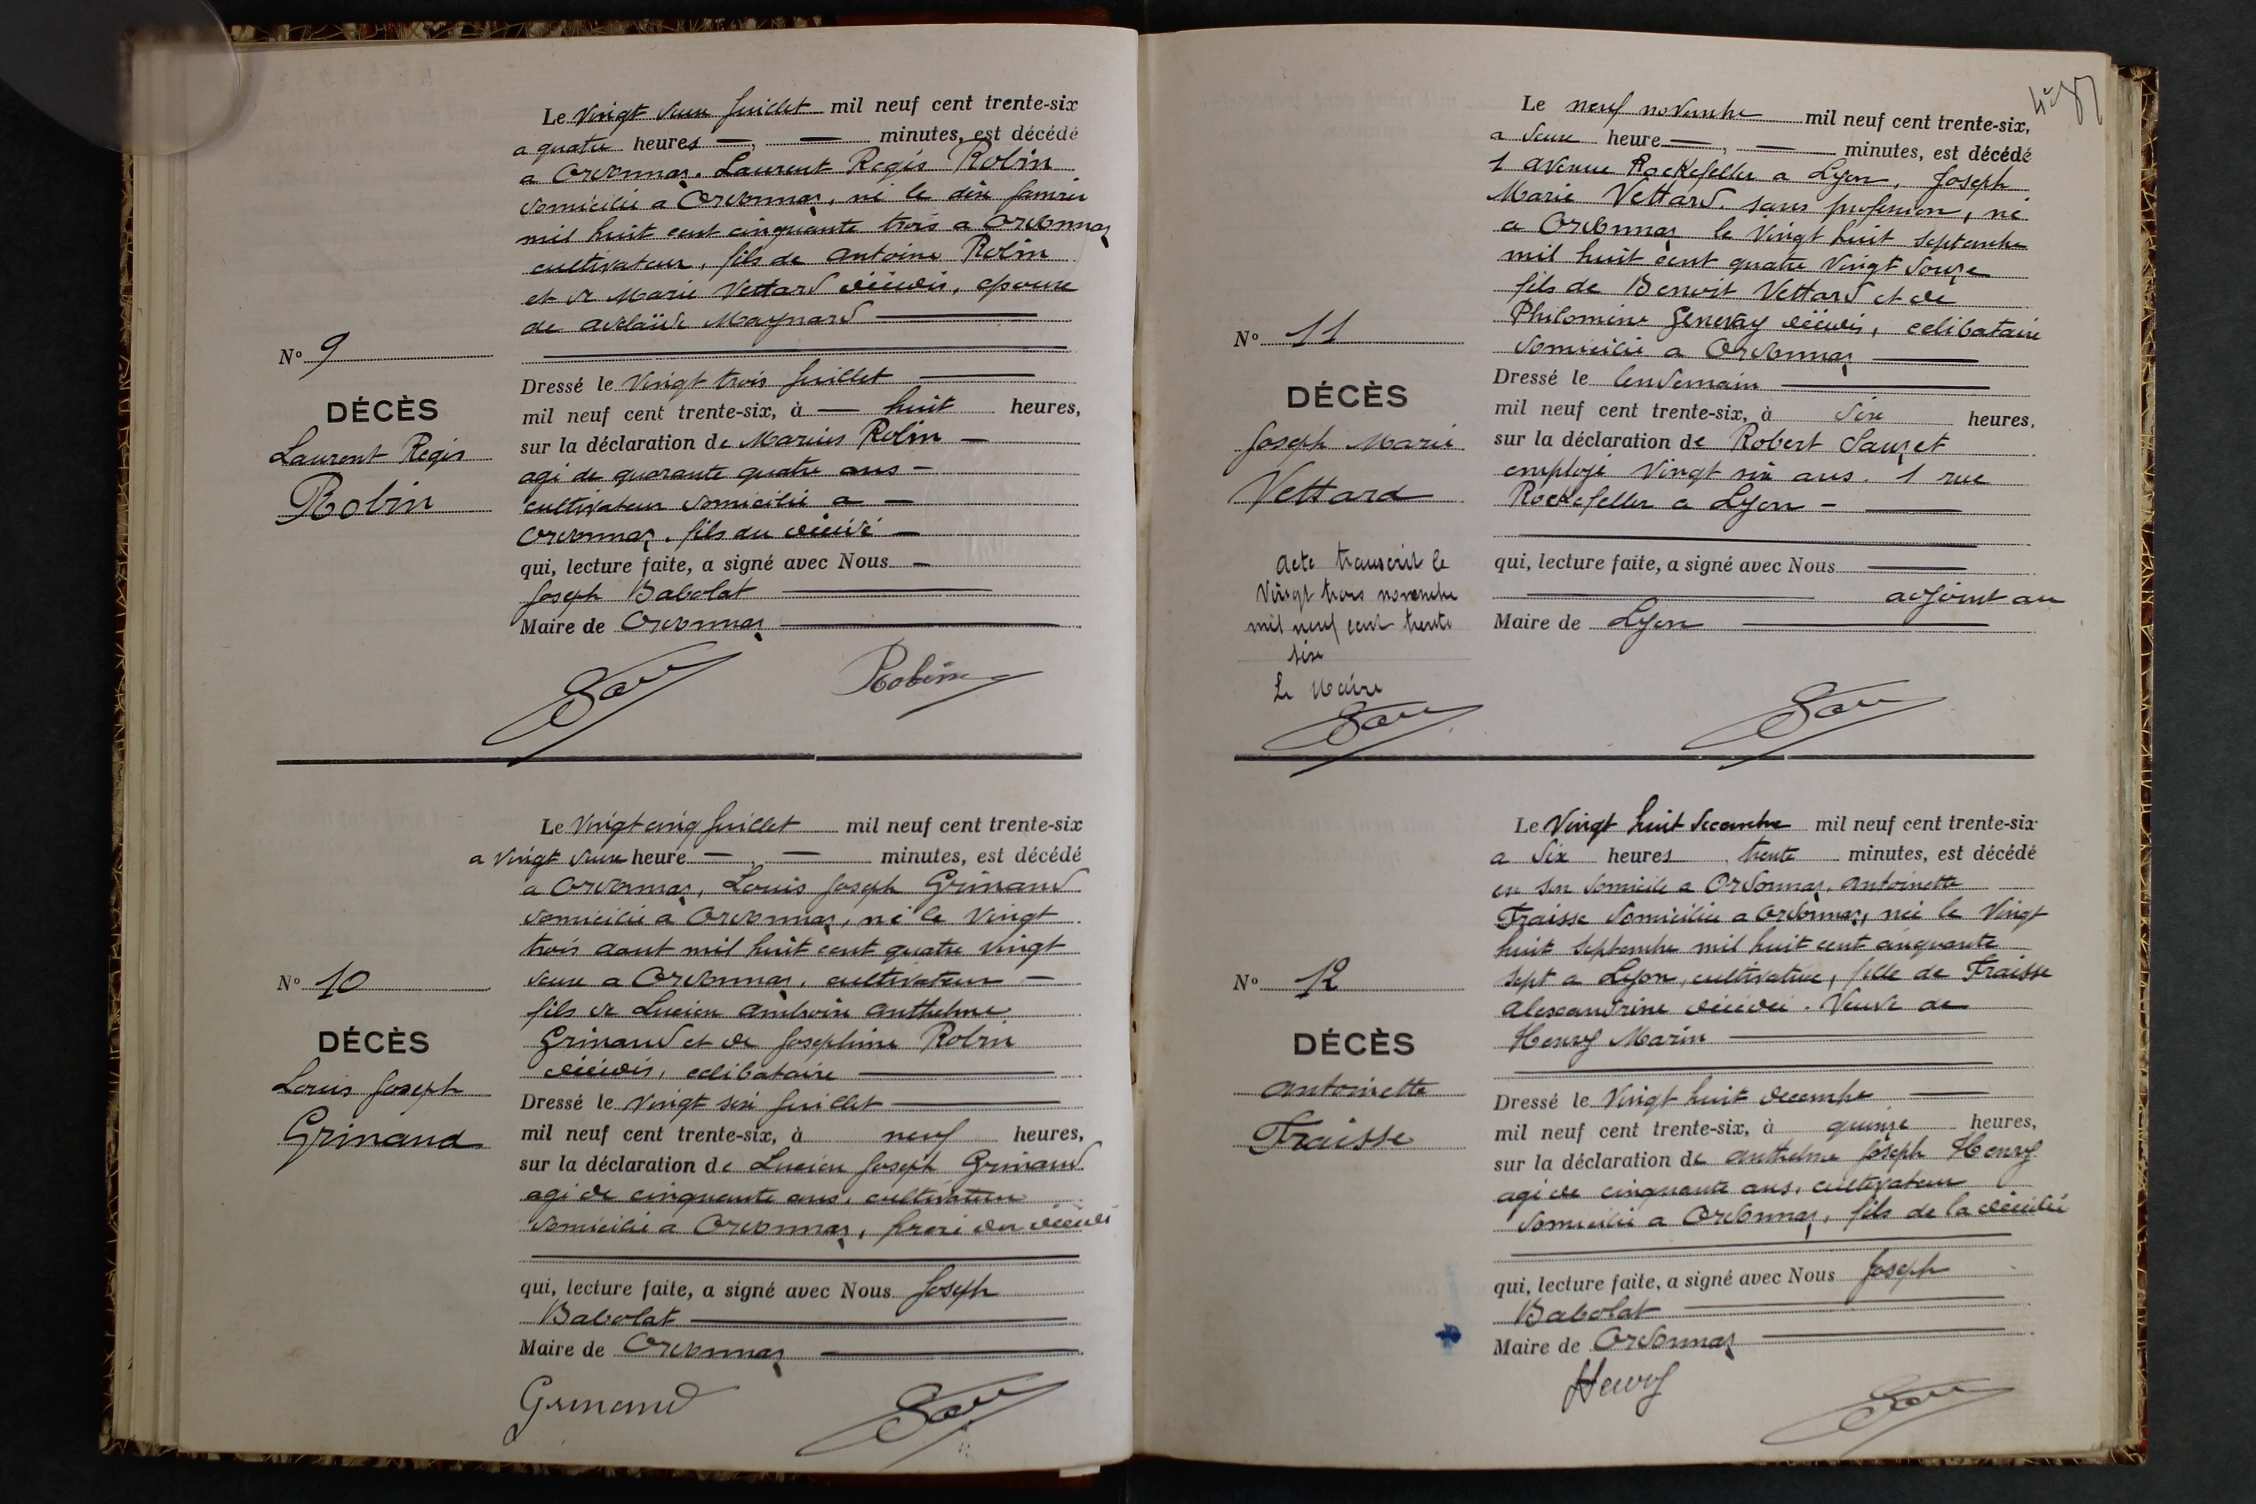 Le vingt deux juillet mil neuf cent trente-six
a quatre heures —, — minutes, est décédé
a Ordonnaz, Laurent Regis Robin
domicilié a Ordonnaz, né le dix janvier
mil huit cent cinquante trois a Ordonnaz
cultivateur, fils de Antoine Robin
et de Marie Vettard décédés, epoux
de Adelaïde Maynard —
No 9
DÉCÈS
Laurent Regis
Robin
Dressé le vingt trois juillet —
mil neuf cent trente-six, à — huit heures,
sur la déclaration de Marius Robin —
agé de quarante quatre ans —
cultivateur domicilié a —
Ordonnaz, fils du décédé —
qui, lecture faite, a signé avec Nous —
Joseph Babolat —
Maire de Ordonnaz —
Robin
Le vingt cinq juillet mil neuf cent trente-six
a vingt deux heure —, — minutes, est décédé
a Ordonnaz, Louis Joseph Grinand
domicilié a Ordonnaz, né le vingt
trois aout mil huit cent quatre vingt
deux a Ordonnaz, cultivateur —
fils de Lucien Ambroise Anthelme
Grinand et de Josephine Robin
décédés, celibataire —
No 10
DÉCÈS
Louis Joseph
Grinand
Dressé le vingt six juillet —
mil neuf cent trente-six, à neuf heures,
sur la déclaration de Lucien Joseph Grinand
agé de cinquante ans, cultivateur
domicilié a Ordonnaz, frere du décédé
qui, lecture faite, a signé avec Nous Joseph
Babolat —
Maire de Ordonnaz —
Grinand
Le neuf novembre mil neuf cent trente-six,
a deux heure —, — minutes, est décédé
1 avenue Rockefeller a Lyon, Joseph
Marie Vettard, sans profession, né
a Ordonnaz le vingt huit septembre
mil huit cent quatre vingt douze
fils de Benoit Vettard et de
Philomene Genevay décédés, celibataire
domicilié a Ordonnaz —
No 11
DÉCÈS
Joseph Marie
Vettard
Acte transcrit le
vingt trois novembre
mil neuf cent trente
six
Le Maire
Dressé le lendemain —
mil neuf cent trente-six, à dix heures,
sur la déclaration de Robert Sauzet
employé vingt six ans, 1 rue
Rockefeller a Lyon —
qui, lecture faite, a signé avec Nous —
— adjoint au
Maire de Lyon —
Le Vingt huit decembre mil neuf cent trente-six
a six heures trente minutes, est décédé
en son domicile a Ordonnaz, Antoinette
Fraisse domiciliée a Ordonnaz, née le vingt
huit septembre mil huit cent cinquante
sept a Lyon, cultivatrice, fille de Fraisse
Alexandrine décédée. Veuve de
Henry Marin —
No 12
DÉCÈS
Antoinette
Fraisse
Dressé le vingt huit decembre —
mil neuf cent trente-six, à quinze heures,
sur la déclaration de Anthelme Joseph Henry
agé de cinquante ans, cultivateur
domicilié a Ordonnaz, fils de la décédée
qui, lecture faite, a signé avec Nous Joseph
Babolat —
Maire de Ordonnaz —
Henry